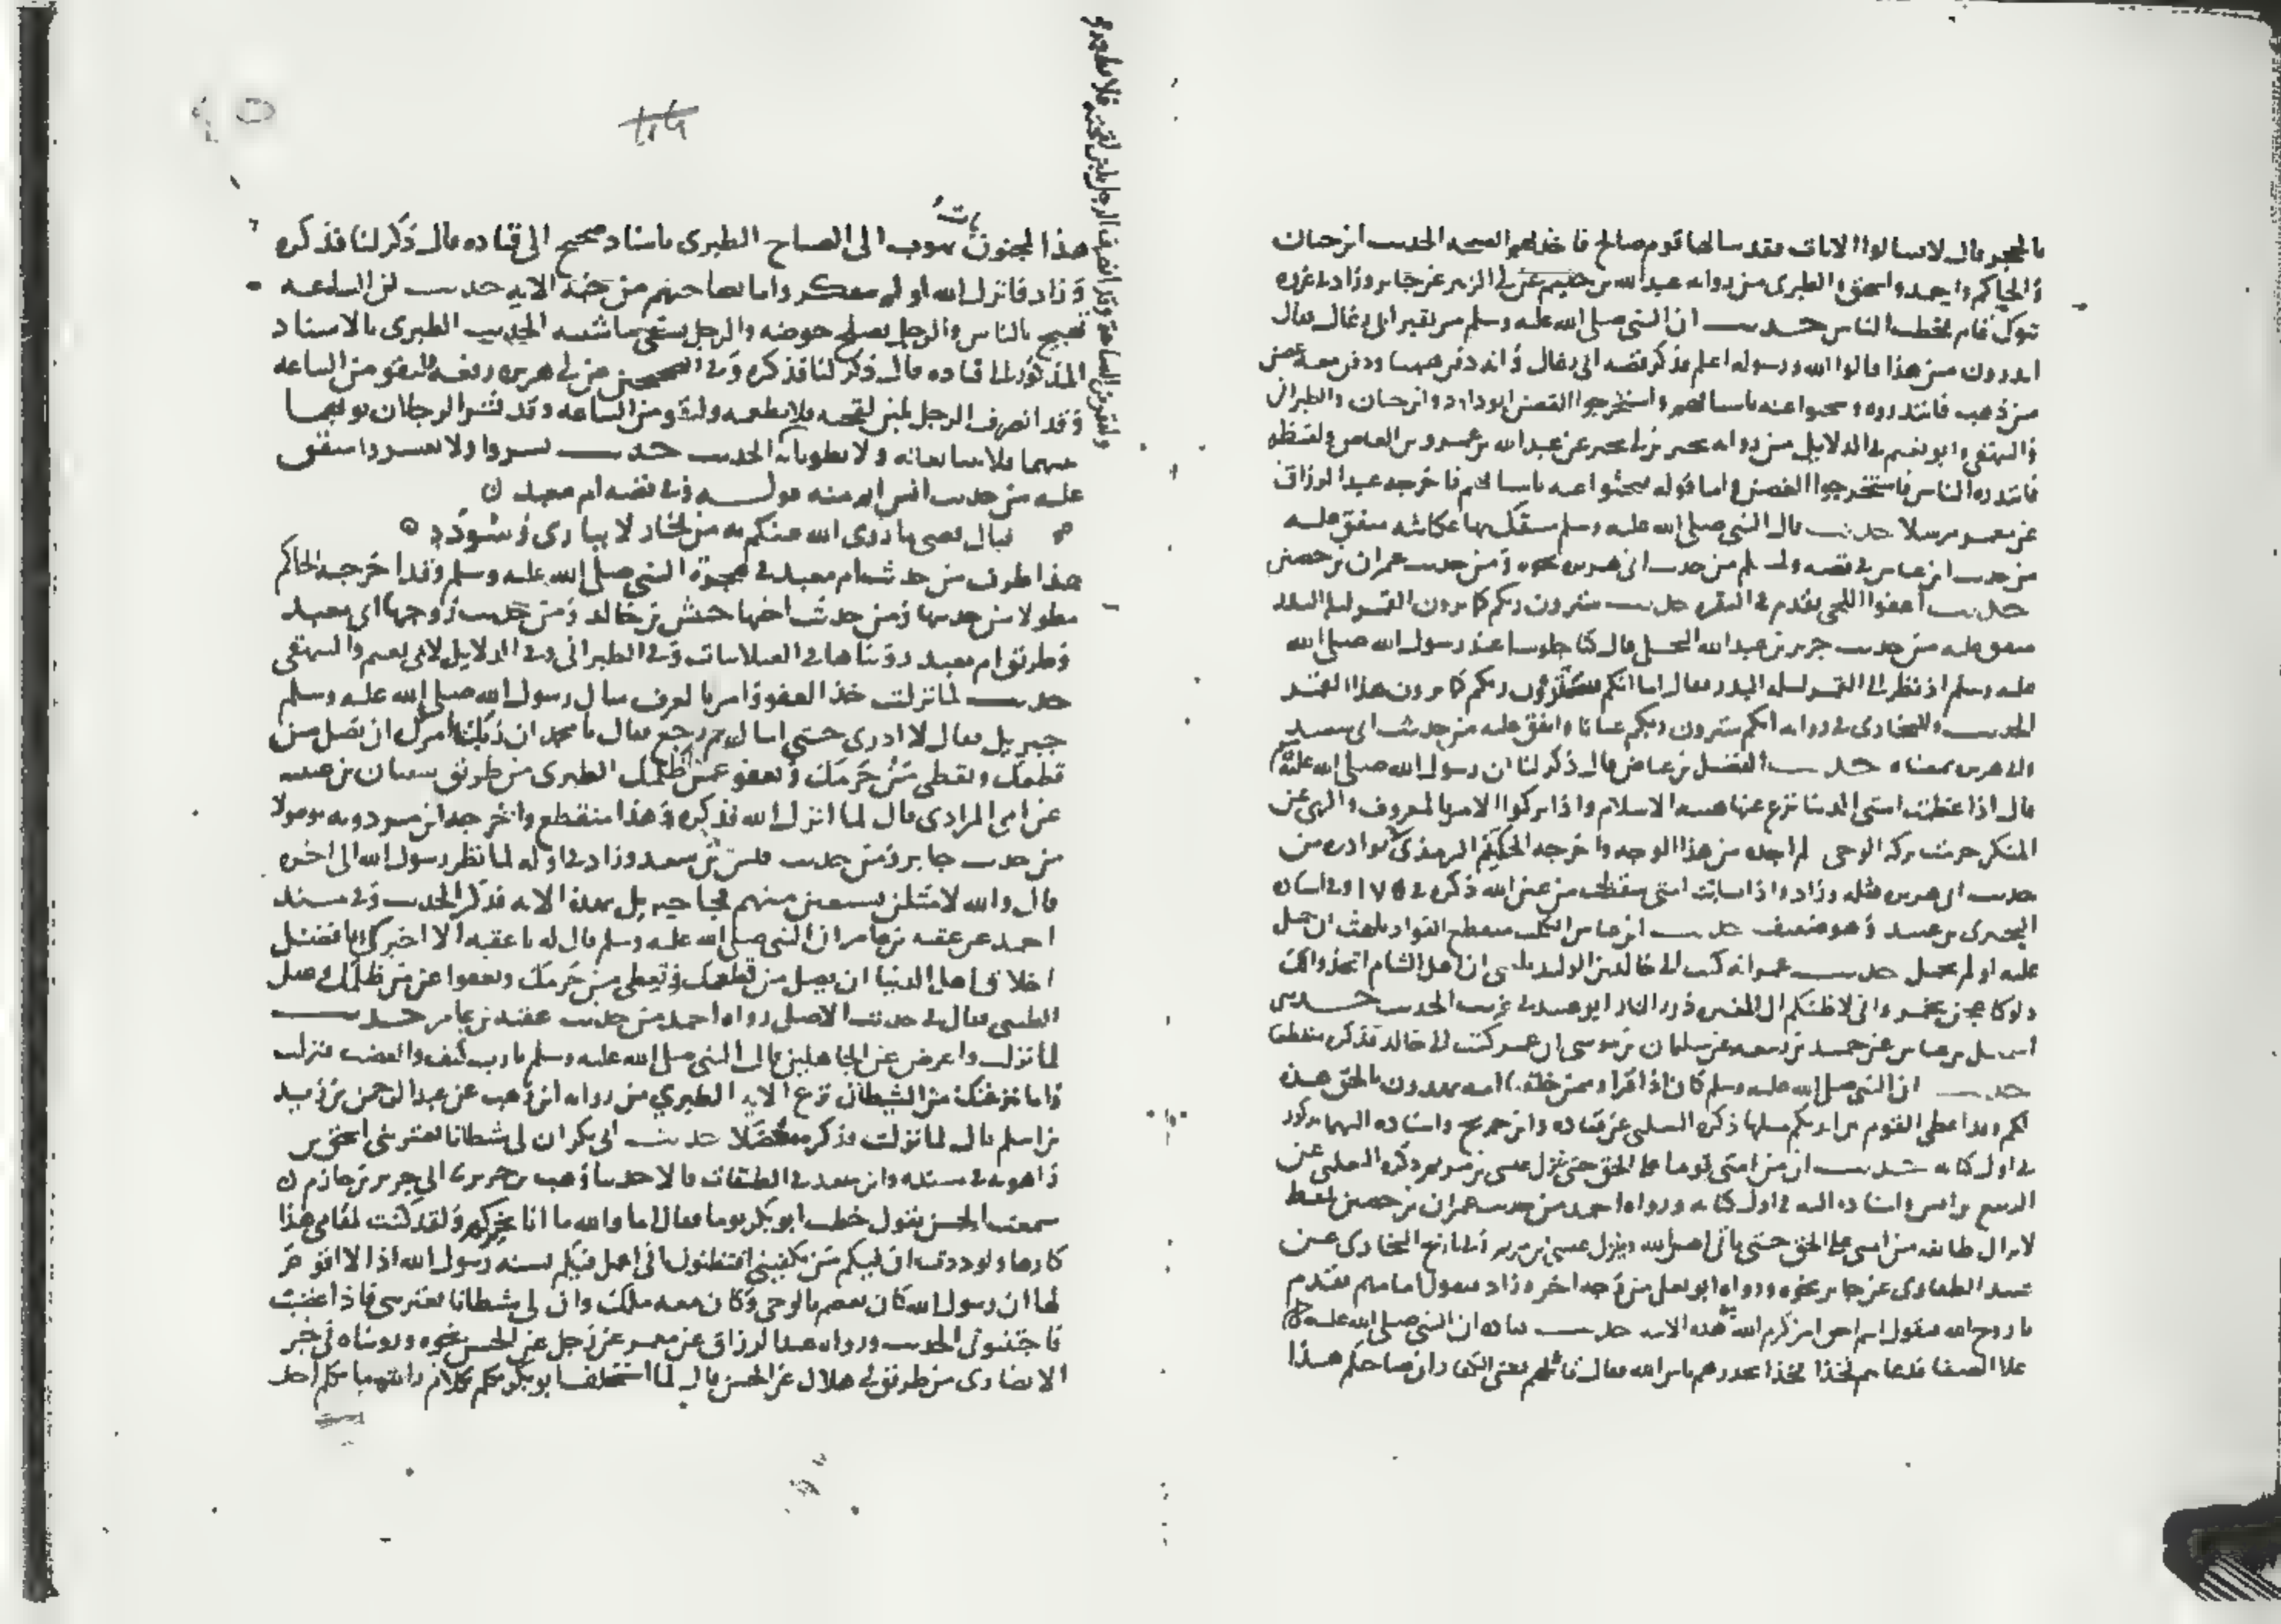 بالحجر قال لا تسالوا الايات فقد سالها قوم صالح فاخذتهم الصيحه الحديث ابن حبان
والحاكم واحمد واسحق والطبرى من روايه عبد الله بن خثيم عن ابى الزبير عن جابر وزاد فى غزوه
تبوك فقام فخطب الناس حديث ان النبى صلى الله عليه وسلم مر بقبر ابى رغال فقال
اتدرون من هذا قالوا الله ورسوله اعلم فذكر قصه ابى رغال وانه دفن ههنا ودفن معه غصن
من ذهب فابتدروه وبحثوا عنه باسيافهم واستخرجوا الغصن ابو داود وابن حبان والطبرانى
والبيهقى وابو نعيم فى الدلايل من روايه بجير بن ابى بجير عن عبد الله بن عمرو بن العاص ولفظه
فابتدره الناس فاستخرجوا الغصن واما قوله فبحثوا عنه باسيافهم فاخرجه عبد الرزاق
عن معمر مرسلا حديث قال النبى صلى الله عليه وسلم سبقك بها عكاشه متفق عليه
من حديث ابن عباس فى قصه ولمسلم من حديث ابى هريره نحوه ومن حديث عمران بن حصين
حديث اعفوا اللحى تقدم فى البقره حديث سترون ربكم كما ترون القمر ليله البدر
متفق عليه من حديث جرير بن عبد الله البجلى قال كنا جلوسا عند رسول الله صلى الله
عليه وسلم اذ نظر الى القمر ليله البدر فقال اما انكم سترون ربكم كما ترون هذا القمر
الحديث وللبخارى فى روايه انكم سترون ربكم عيانا واتفق عليه من حديث ابى سعيد
وابى هريره بمعناه حديث الفضيل بن عياض قال ذكر لنا ان رسول الله صلى الله عليه وسلم
قال اذا عظمت امتى الدنيا نزع عنها هيبه الاسلام واذا تركوا الامر بالمعروف والنهى عن
المنكر حرمت بركه الوحى لم اجده من هذا الوجه واخرجه الحكيم الترمذى فى نوادره من
حديث ابى هريره مثله وزاد واذا تسابت امتى سقطت من عين الله ذكره فى ١٧٥ وفى اسناده
البخترى بن عبيد وهو ضعيف حديث ابن عباس الكلب منقطع الفواد يلهث ان حمل
عليه او لم يحمل حديث عمر انه كتب الى خالد بن الوليد بلغنى ان اهل الشام اتخذوا لك
دلوكا عجن بخمر وانى لاظنكم ال المغيره ذرو النار ابو عبيد فى غريب الحديث حديث
اسمعيل بن عياش عن حميد بن ربيعه عن سليمان بن موسى ان عمر كتب الى خالد فذكره منقطعا
حديث ان النبى صلى الله عليه وسلم كان اذا قرا وممن خلقنا امه يهدون بالحق هذه
لكم وقد اعطى القوم بين ايديكم مثلها ذكره الثعلبى عن قتاده وابن جريج واسناده اليهما مذكور
فى اول كتابه حديث ان من امتى قوما على الحق حتى ينزل عيسى بن مريم ذكره الثعلبى عن
الربيع بن انس واسناده اليه فى اول كتابه ورواه احمد من حديث عمران بن حصين بلفظ
لا تزال طايفه من امتى على الحق حتى ياتى امر الله وينزل عيسى بن مريم وفى تاريخ البخارى عن
الطفاوى عن جابر نحوه ورواه ابو يعلى من وجه اخر وزاد فيقول امامهم تقدم
يا روح الله فيقول انتم احق امر كرم الله به هذه الامه حديث قتاده ان النبى صلى الله عليه وسلم
علا الصفا فدعاهم فخذا فخذا يحذرهم باس الله فقال قايلهم يعنى الكفار ان صاحبكم هذا
١٨٩
هذا لمجنون بات يهوت الى الصباح الطبرى باسناد صحيح الى قتاده قال ذكر لنا فذكره
وزاد فانزل الله اولم يتفكروا ما بصاحبهم من جنه الايه حديث ان الساعه
تهيج بالناس والرجل يصلح حوضه والرجل يسقى ماشيته الحديث الطبرى بالاسناد
المذكور الى قتاده قال ذكر لنا فذكره وفى الصحيحين عن ابى هريره رفعه لتقومن الساعه
وقد انصرف الرجل بلبن لقحته فلا يطعمه ولتقومن الساعه وقد نشر الرجلان ثوبهما
بينهما فلا يتبايعانه ولا يطويانه الحديث حديث يسروا ولا تعسروا متفق
عليه من حديث انس ابه منه قوله وفى قصه ام معبد ن
فيال قصى ما زوى الله عنكم به من فخار لا يبارى وسودد
هذا طرف من حديث ام معبد فى هجرة النبى صلى الله عليه وسلم وقد اخرجه الحاكم
مطولا من حديثها ومن حديث اخيها حبيش بن خالد ومن حديث زوجها ابى معبد
وطريق ام معبد رويناها فى الغيلانيات وفى الطبرانى وفى الدلايل لابى نعيم والبيهقى
حديث لما نزلت خذ العفو وامر بالعرف سال رسول الله صلى الله عليه وسلم
جبريل فقال لا ادرى حتى اسال ثم رجع فقال يا محمد ان ربك امرك ان تصل من
قطعك وتعطى من حرمك وتعفو عمن ظلمك الطبرى من طريق سفيان بن عيينه
عن امى المرادى قال لما انزل الله فذكره وهذا منقطع واخرجه ابن مردويه موصولا
من حديث جابر ومن حديث قيس بن سعد وزاد فى اوله لما نظر رسول الله الى حمزه
قال والله لامثلن بسبعين منهم فجا جبريل بهذه الايه فذكر الحديث وفى مسند
احمد عن عقبه بن عامر ان النبى صلى الله عليه وسلم قال له يا عقبه الا اخبرك بافضل
اخلاق اهل الدنيا ان تصل من قطعك وتعطى من حرمك وتعفوا عن من ظلمك وغفل
الطيبى فقال فى حديث الاصل رواه احمد من حديث عقبه بن عامر حديث
لما نزلت واعرض عن الجاهلين قال النبى صلى الله عليه وسلم يا رب كيف والغضب فنزلت
واما ينزغنك من الشيطان نزغ الايه الطبرى من روايه ابن وهب عن عبد الرحمن بن زيد
بن اسلم قال لما نزلت فذكره معضلا حديث ابى بكر ان لى شيطانا يعترينى اسحق بن
راهويه فى مسنده وابن سعد فى الطبقات قالا حدثنا وهب بن جرير نا ابى جرير بن حازم ن
سمعت الحسن يقول خطب ابو بكر يوما فقال اما والله ما انا بخيركم ولقد كنت لمقامى هذا
كارها ولوددت ان فيكم من يكفينى افتظنون انى اعمل فيكم بسنه رسول الله اذا لا اقوم
لها ان رسول الله كان يعصم بالوحى وكان معه ملك وان لى شيطانا يعترينى فاذا غضبت
فاجتنبونى الحديث ورواه عبد الرزاق عن معمر عن رجل عن الحسن نحوه ورويناه فى خبر
الانصارى من طريق ابى هلال عن الحسن قال لما استخلف ابو بكر تكلم بكلام والله ما تكلم احد
ولتقومن الساعة وقد انصرف الرجل بلبن لقحته فلا يطعمه